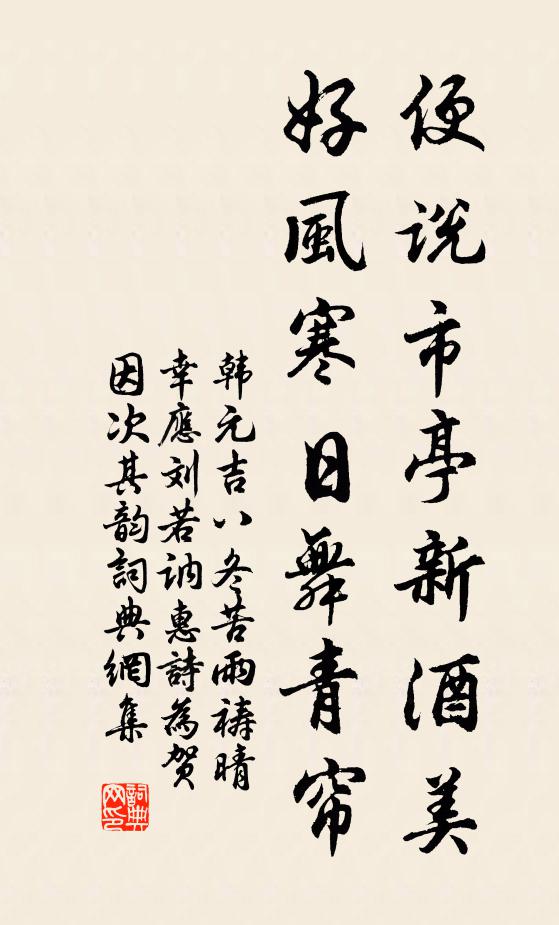 便說市亭新酒美
好風寒日舞青帘
韩元吉八冬苦雨祷晴
幸應刘若訥惠詩為贺
因次其韵詞典網集
詞典网印